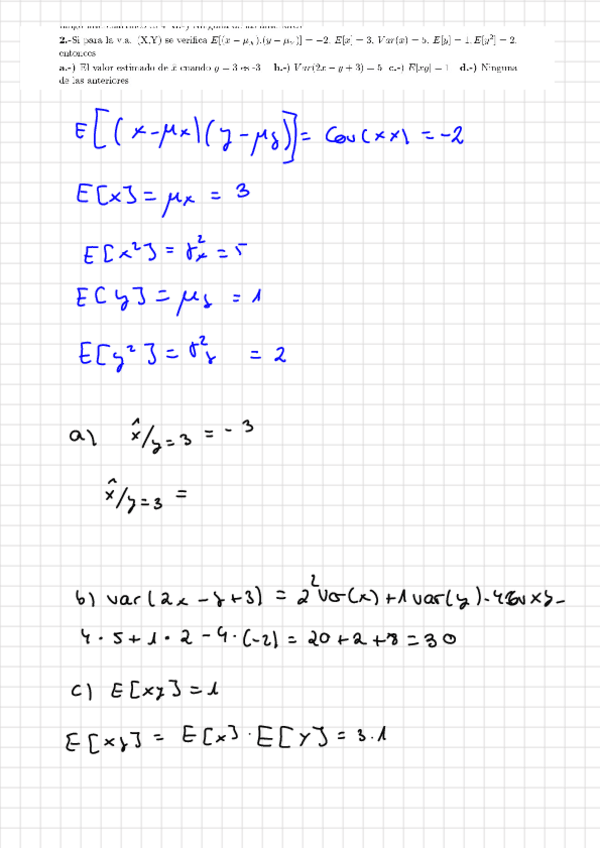 2.-Si para la v.a. (X,Y) se verifica E[(x − μₓ).(y − μᵧ)] = −2, E[x] = 3, Var(x) = 5, E[y] = 1, E[y²] = 2,
entonces
a.-) El valor estimado de x cuando y = 3 es -3 b.-) Var(2x − y + 3) = 5 c.-) E[xy] = 1 d.-) Ninguna
de las anteriores
E[(x-μx)(y-μy)] = Cov(xx) = -2
E[x] = μx = 3
E[x²] = σ²x = 5
E[y] = μy = 1
E[y²] = σ²y = 2
a) x̂/y=3 = -3
x̂/y=3 =
b) var(2x - y + 3) = 2² var(x) + 1 var(y) - 4 cov xy =
4 · 5 + 1 · 2 - 4 · (-2) = 20 + 2 + 8 = 30
c) E[xy] = 1
E[xy] = E[x] · E[Y] = 3 · 1